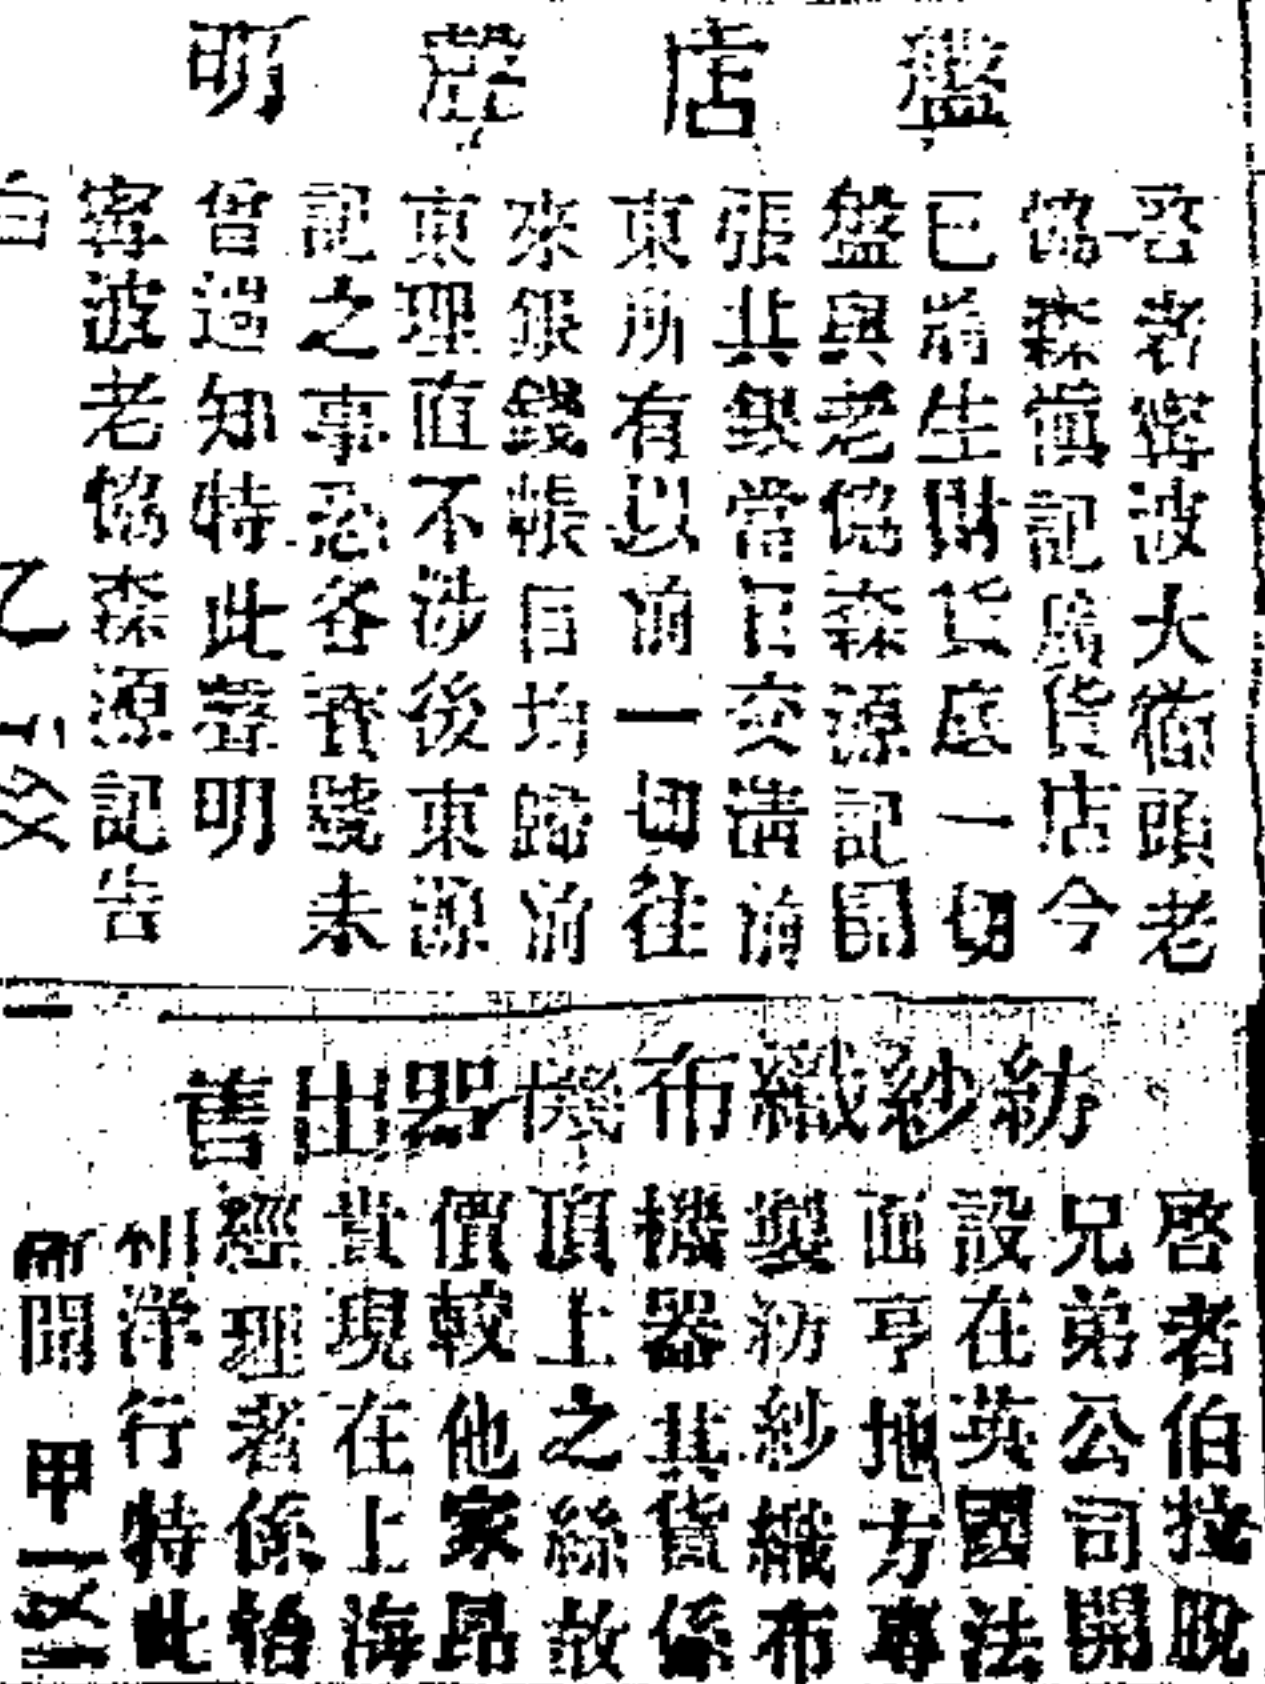 盤店聲明
啓者寗波大衜頭老
協森愼記廣貨店今
已前生財貨底一切
盤與老協森源記開
張其銀當日交淸前
東所有以前一切往
來銀錢帳目均歸前
東理直不涉後東源
記之事恐各寳號未
曾週知特此聲明
寗波老協森源記告
白
紡紗織布機器出售
啓者伯拉脫
兄弟公司開
設在英國法
面亨地方專
製紡紗織布
機器其貨係
頂上之絲故
價較他家昂
貴現在上海
經理者係怡
和洋行特此
佈聞